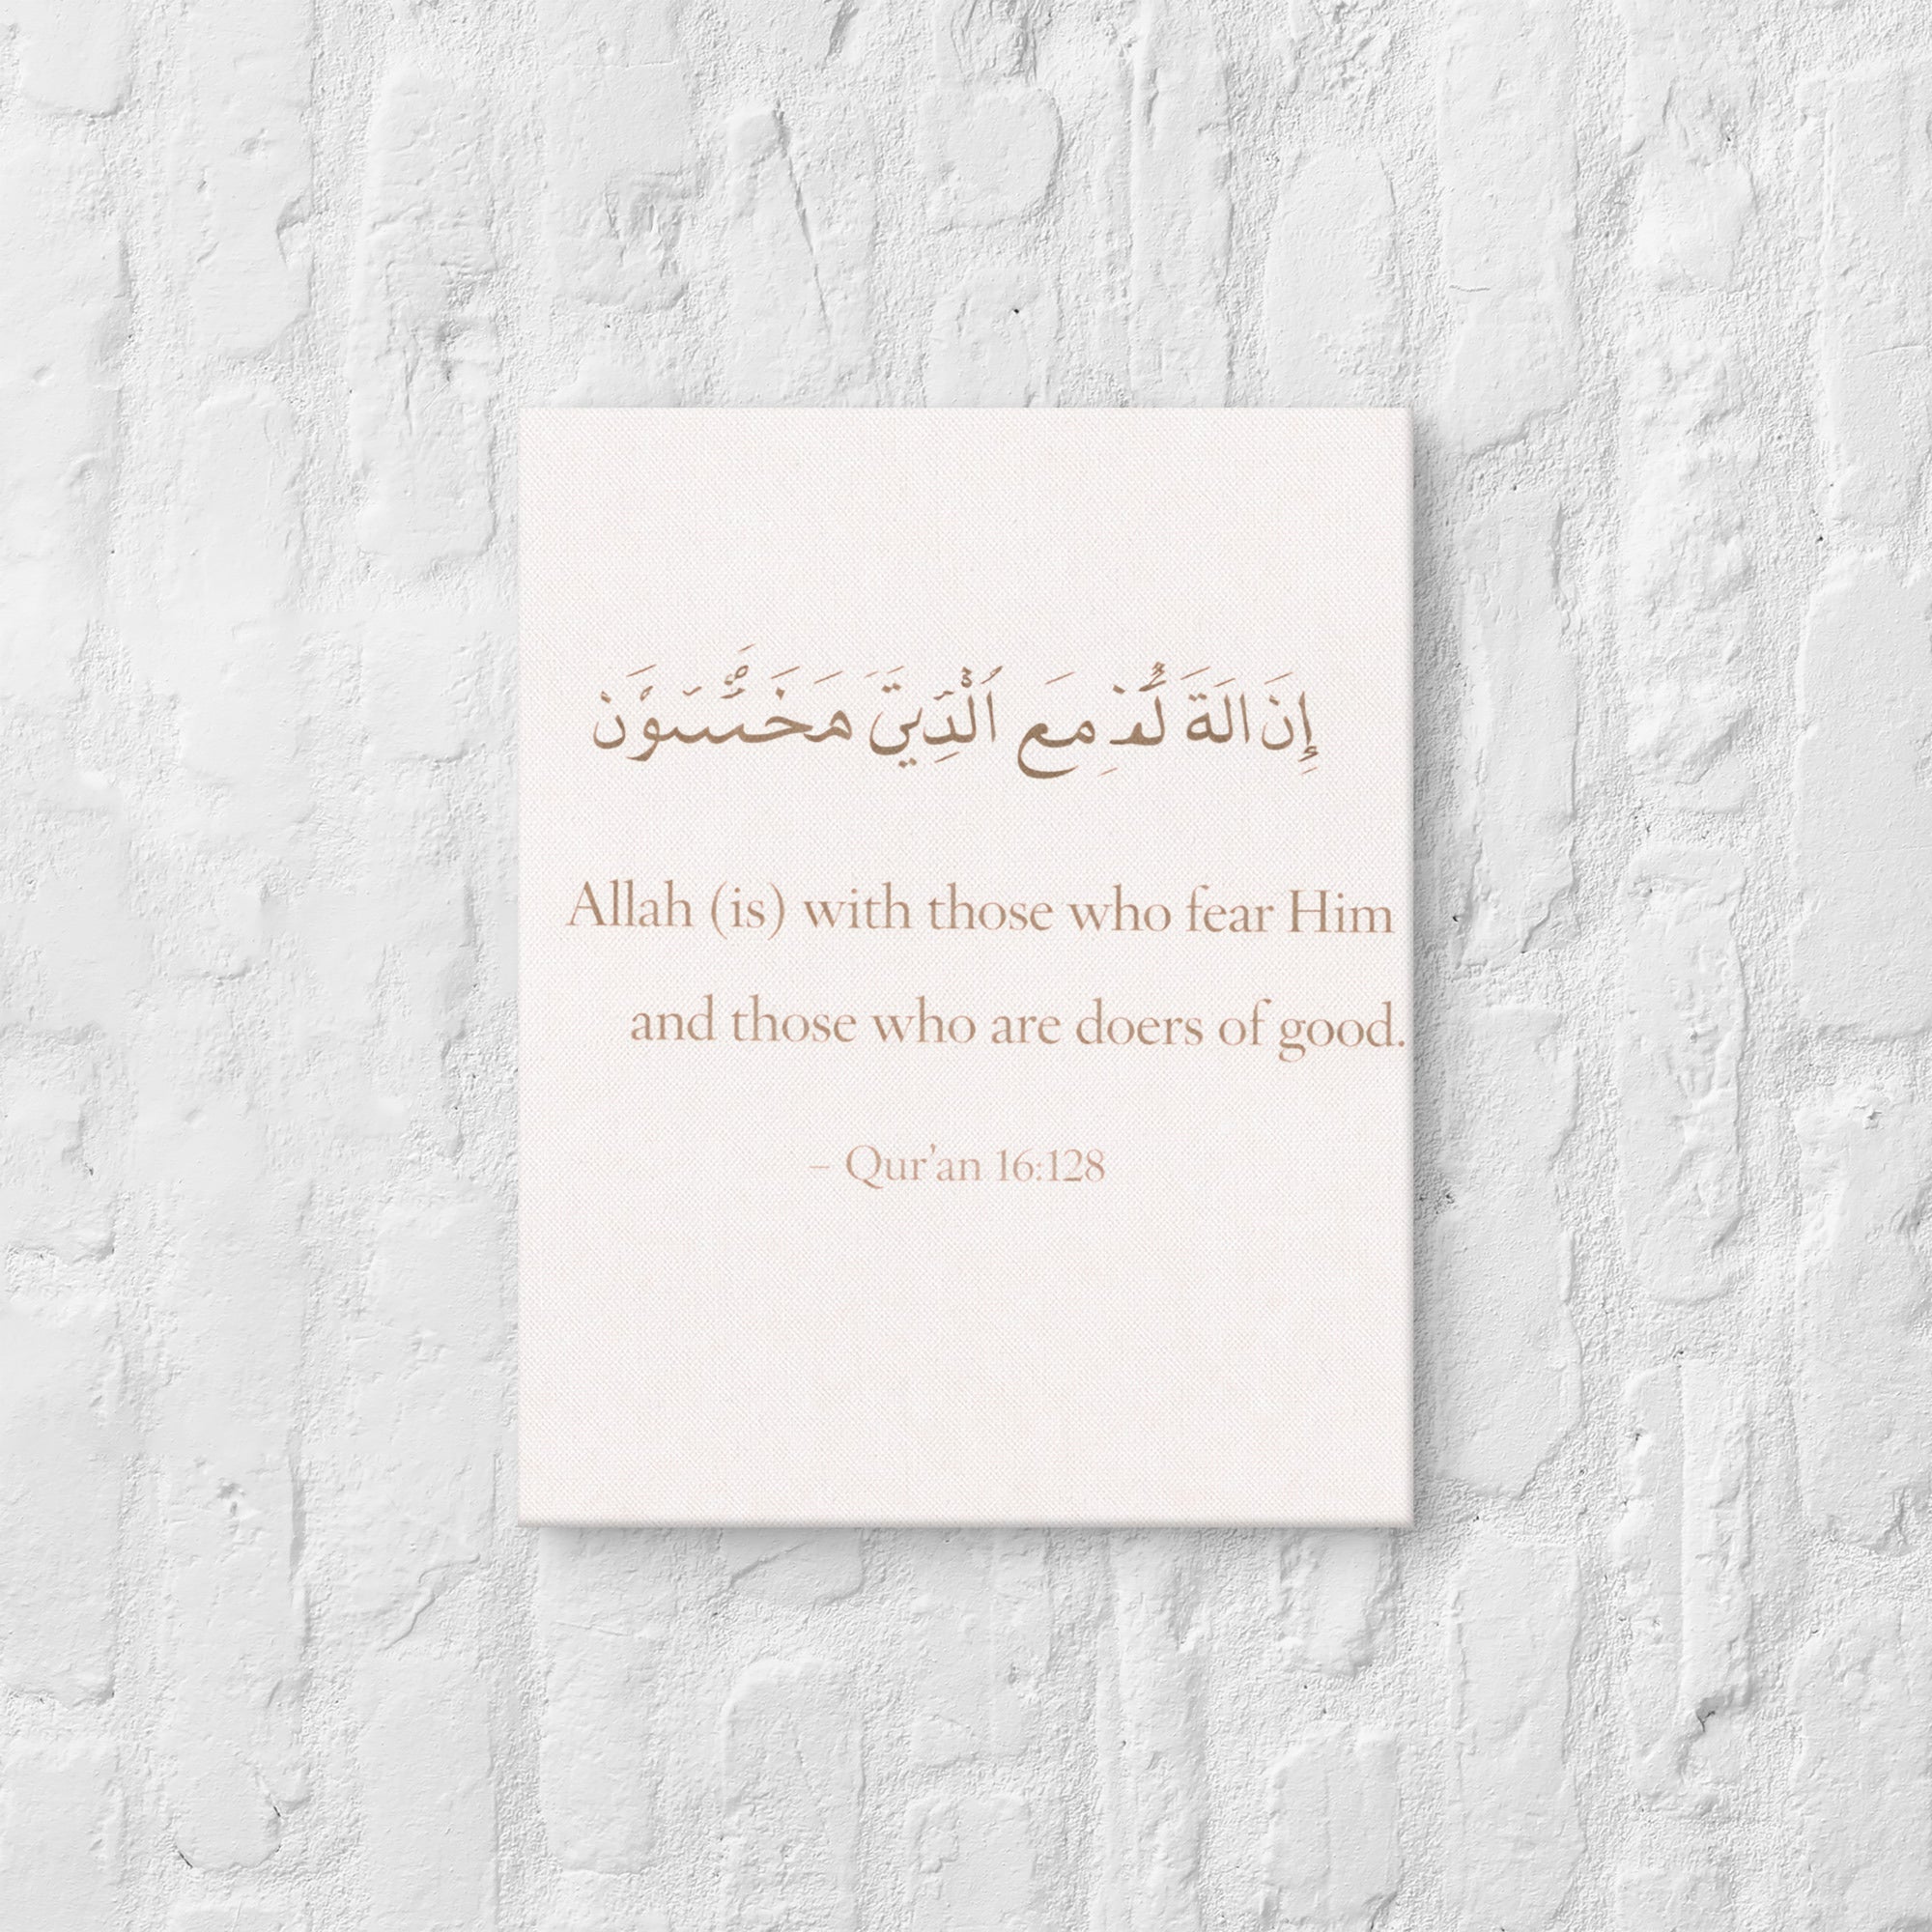 إِنَ الَةَ لَّذِ مِمَع الَّذِيتَّ مَخَسُّسَوْن
Allah (is) with those who fear Him
and those who are doers of good.
– Qur’an 16:128